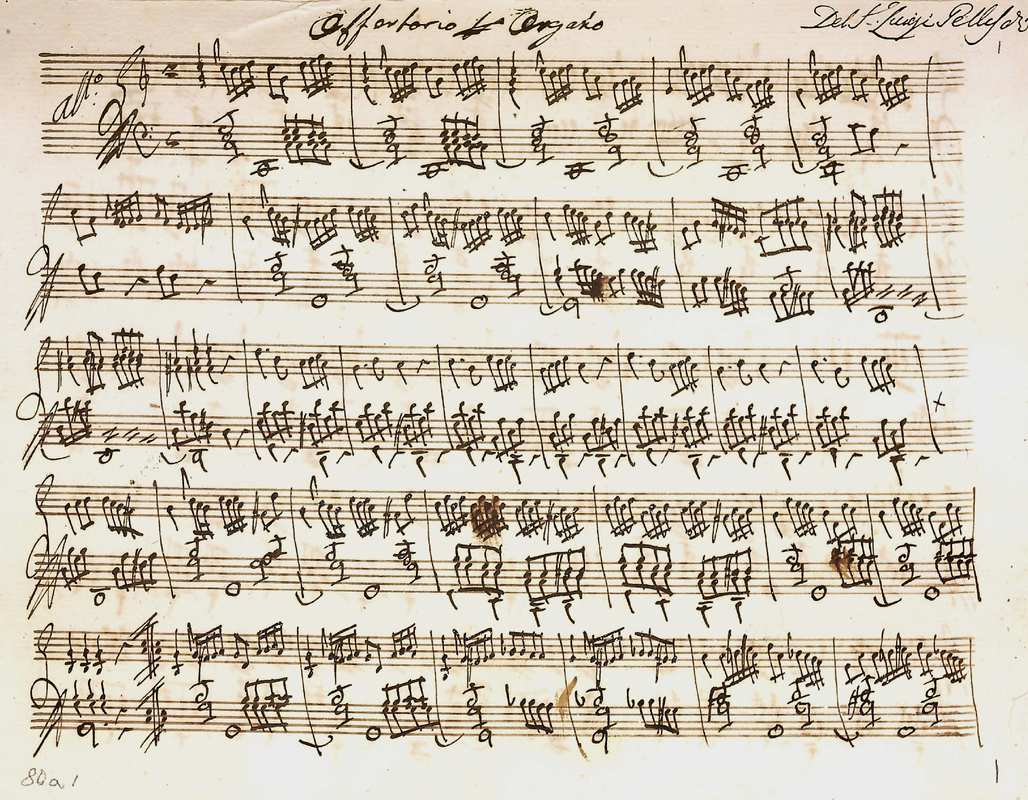 Offertorio Organo
Del Sr. Luigi
All.º
80a1
1